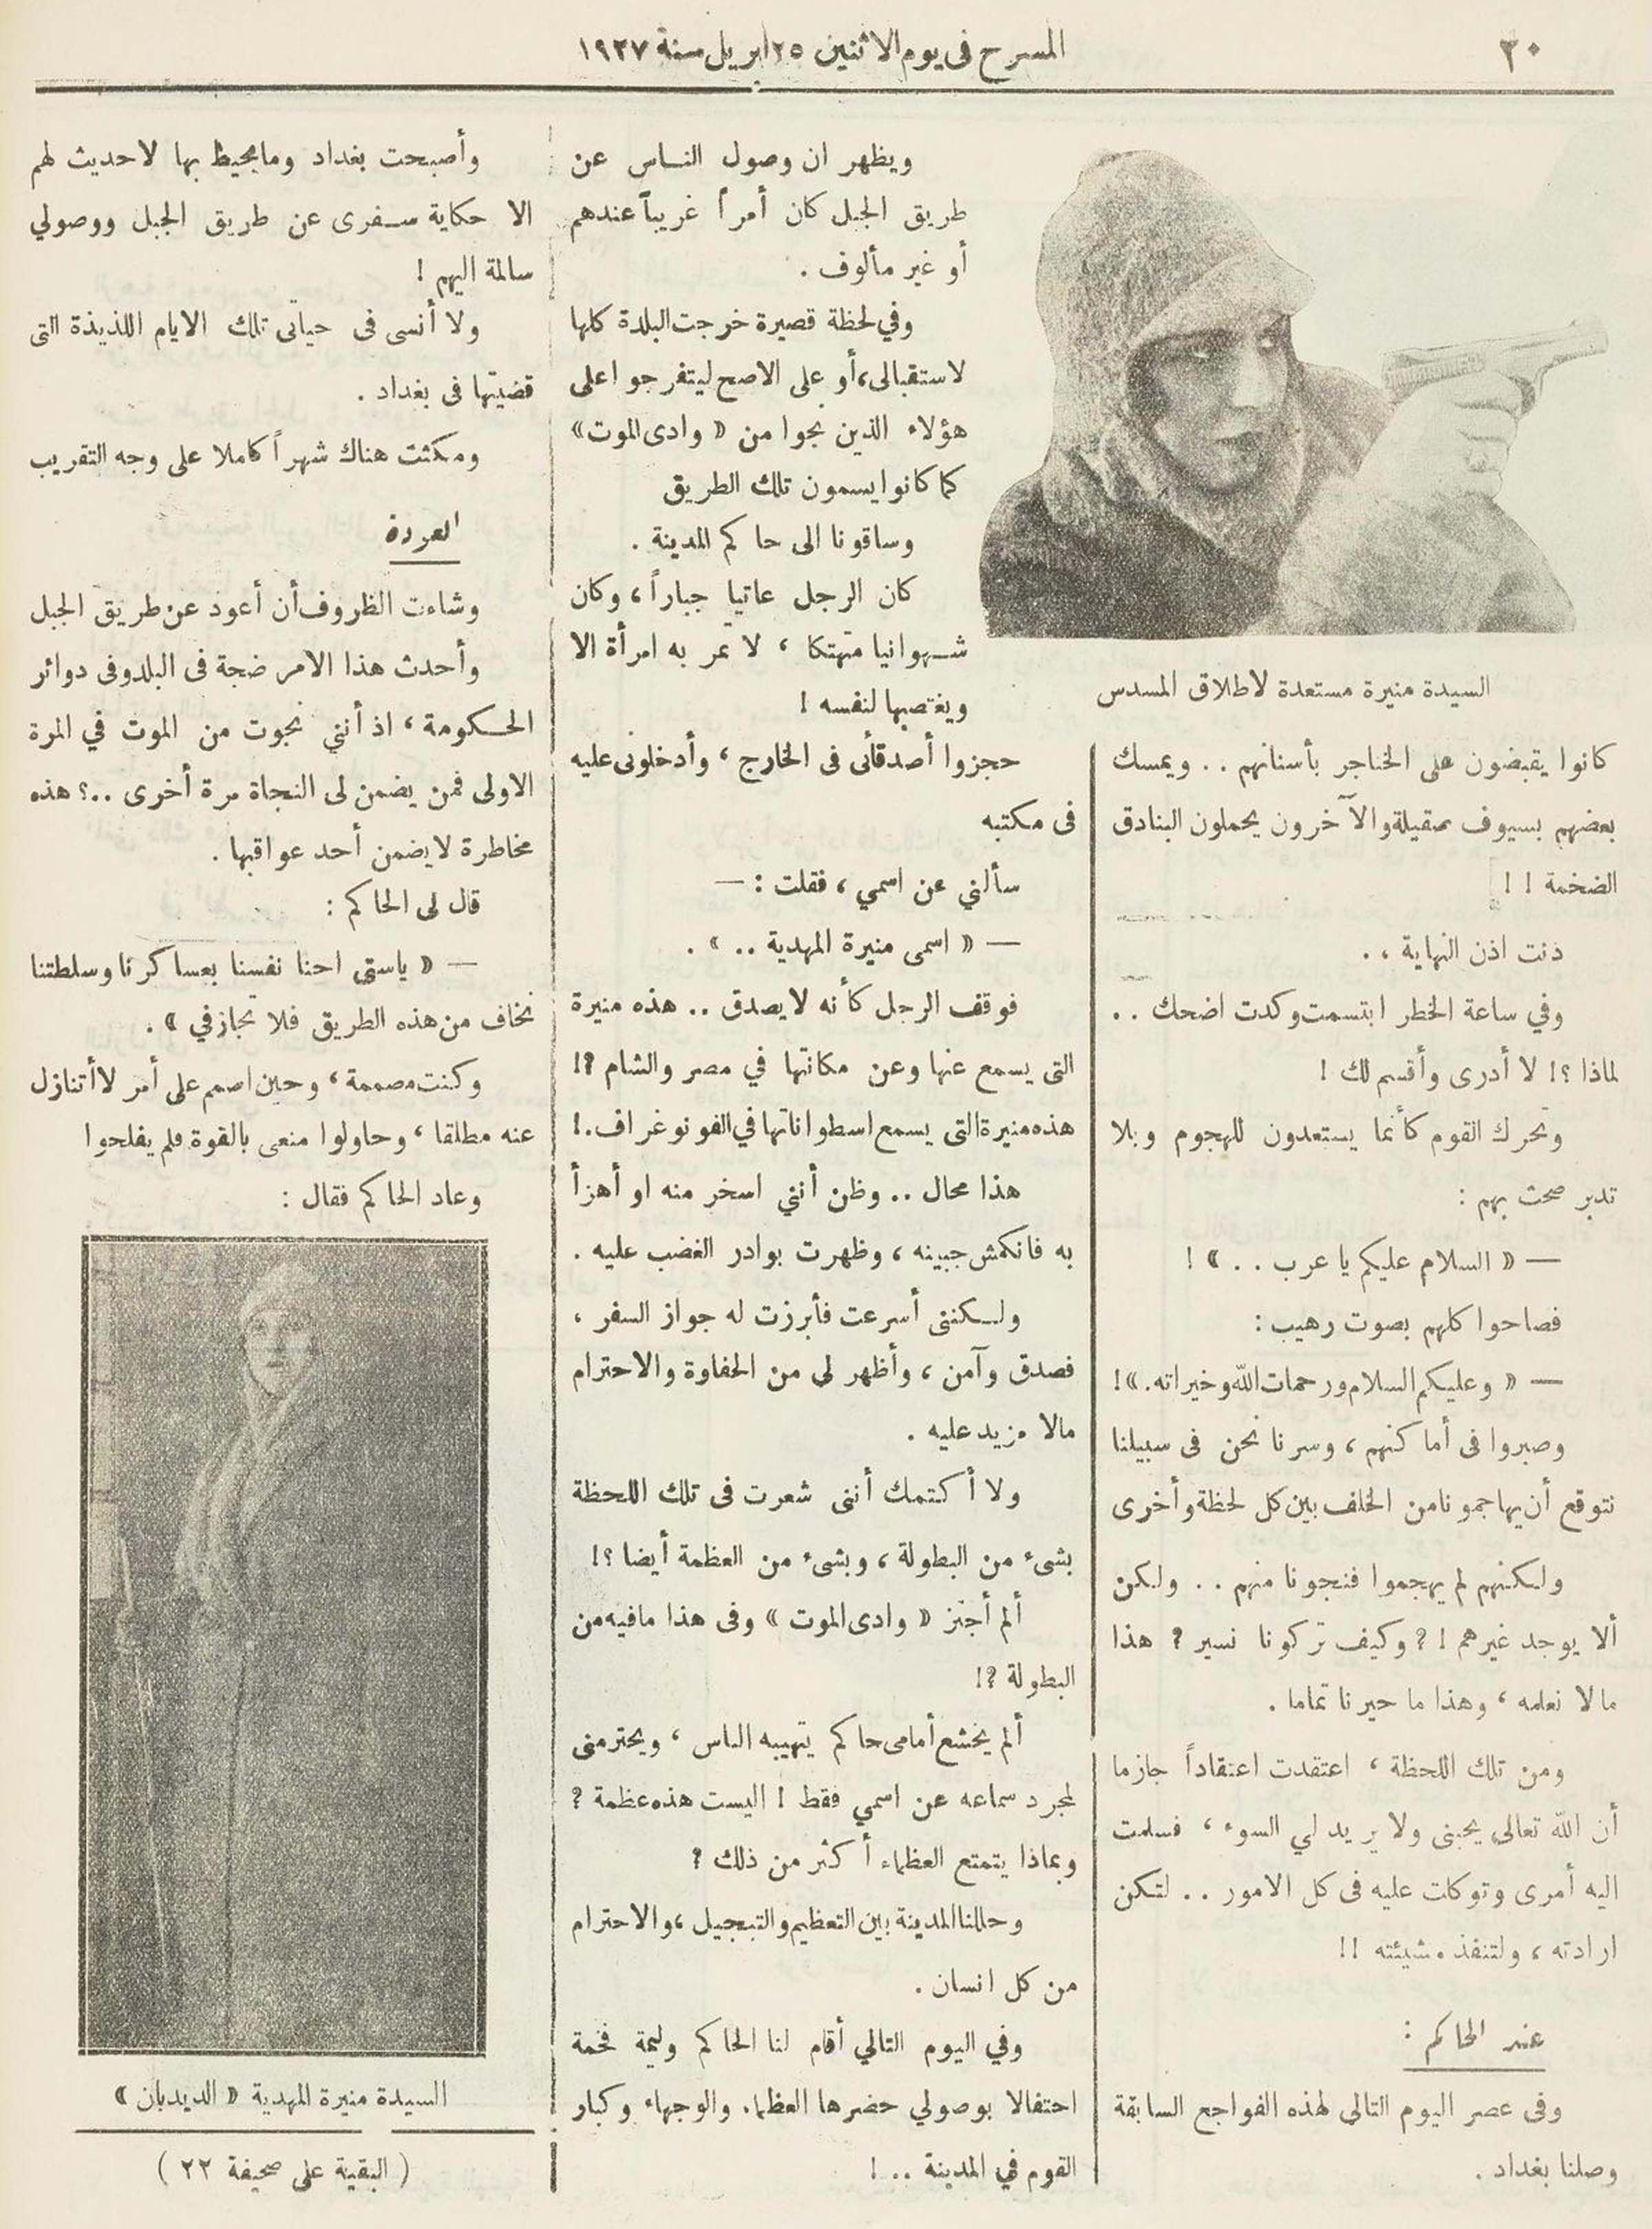 ٢٠
المسرح فى يوم الاثنين ٢٥ ابريل سنة ١٩٢٧
السيدة منيرة مستعدة لاطلاق المسدس
كانوا يقبضون على الخناجر بأسنانهم . . ويمسك
بعضهم بسيوف صقيلة والآخرون يحملون البنادق
الضخمة ! !
دنت اذن النهاية . .
وفي ساعة الخطر ابتسمت وكدت اضحك . .
لماذا ؟! لا أدرى وأقسم لك !
وتحرك القوم كأنما يستعدون للهجوم وبلا
تدبر صحت بهم :
— « السلام عليكم يا عرب . . » !
فصاحوا كلهم بصوت رهيب :
— « وعليكم السلام ورحمات الله وخيراته . » !
وصبروا فى أماكنهم ، وسرنا نحن فى سبيلنا
نتوقع أن يهاجمونا من الخلف بين كل لحظة وأخرى
ولكنهم لم يهجموا فنجونا منهم . . ولكن
ألا يوجد غيرهم ! ? وكيف تركونا نسير ? هذا
مالا نعلمه ، وهذا ما حيرنا تماما .
ومن تلك اللحظة ، اعتقدت اعتقاداً جازما
أن الله تعالى يحبنى ولا يريد لي السوء ، فسلمت
اليه أمرى وتوكلت عليه فى كل الامور . . لتكن
ارادته ، ولتنفذ مشيئته !!
عند الحاكم :
وفى عصر اليوم التالى لهذه الفواجع السابقة
وصلنا بغداد .
ويظهر ان وصول الناس عن
طريق الجبل كان أمراً غريباً عندهم
أو غير مألوف .
وفي لحظة قصيرة خرجت البلدة كلها
لاستقبالى، أو على الاصح ليتفرجوا على
هؤلاء الذين نجوا من « وادى الموت»
كما كانوا يسمون تلك الطريق
وساقونا الى حاكم المدينة .
كان الرجل عاتيا جباراً ، وكان
شهوانيا متهتكا ، لا تمر به امرأة الا
ويغتصبها لنفسه !
حجزوا أصدقأنى فى الخارج ، وأدخلونى عليه
فى مكتبه
سألني عن اسمي ، فقلت : —
— « اسمى منيرة المهدية .. » .
فوقف الرجل كأنه لا يصدق .. هذه منيرة
التى يسمع عنها وعن مكانتها في مصر والشام ?!
هذه منيرة التى يسمع اسطواناتها في الفونوغراف.!
هذا محال .. وظن أنني اسخر منه او أهزأ
به فانكمش جبينه ، وظهرت بوادر الغضب عليه .
ولكننى أسرعت فأبرزت له جواز السفر ،
فصدق وآمن ، وأظهر لى من الحفاوة والاحترام
مالا مزيد عليه .
ولا أكتمك أننى شعرت فى تلك اللحظة
بشىء من البطولة ، وبشىء من العظمة أيضا ؟!
ألم أجتز « وادى الموت » وفى هذا ما فيه من
البطولة ?!
ألم يخشع أمامى حاكم يتهيبه الناس ، ويحترمنى
لمجرد سماعه عن اسمي فقط ! اليست هذه عظمة ?
وبماذا يتمتع العظماء أكثر من ذلك ?
وحللنا المدينة بين التعظيم والتبجيل ، والاحترام
من كل انسان .
وفي اليوم التالي أقام لنا الحاكم وليمة فخمة
احتفالا بوصولي حضرها العظماء والوجهاء وكبار
القوم في المدينة .. !
وأصبحت بغداد وما يحيط بها لا حديث لهم
الا حكاية سفرى عن طريق الجبل ووصولي
سالمة اليهم !
ولا أنسى فى حياتى تلك الايام اللذيذة التى
قضيتها فى بغداد .
ومكثت هناك شهراً كاملا على وجه التقريب
العودة
وشاءت الظروف أن أعود عن طريق الجبل
وأحدث هذا الامر ضجة فى البلد وفى دوائر
الحكومة ، اذ أنني نجوت من الموت في المرة
الاولى فمن يضمن لى النجاة مرة أخرى ..؟ هذه
مخاطرة لا يضمن أحد عواقبها .
قال لى الحاكم :
— « ياستى احنا نفسنا بعساكرنا وسلطتنا
نخاف من هذه الطريق فلا تجازفي » .
وكنت مصممة ، وحين اصمم على أمر لا أتنازل
عنه مطلقا ، وحاولوا منعى بالقوة فلم يفلحوا
وعاد الحاكم فقال :
السيدة منيرة المهدية « الديدبان »
( البقية على صحيفة ٢٢ )